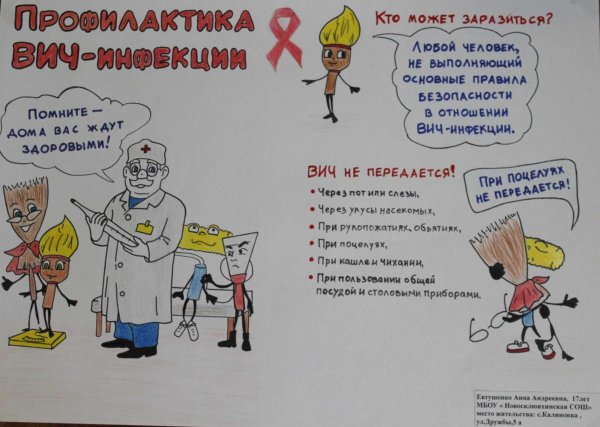 Профилактика
ВИЧ-инфекции
Помните –
дома вас ждут
здоровыми!
Кто может заразиться?
Любой человек,
не выполняющий
основные правила
безопасности
в отношении
ВИЧ-инфекции.
ВИЧ не передается!
• Через пот или слезы,
• Через укусы насекомых,
• При рукопожатиях, объятиях,
• При поцелуях,
• При кашле и чихании,
• При пользовании общей
посудой и столовыми приборами.
При поцелуях
не передается!
Евтушенко Анна Андреевна, 17лет
МБОУ « Новосклюихинская СОШ»
место жительства: с.Калиновка ,
ул.Дружбы,5 а